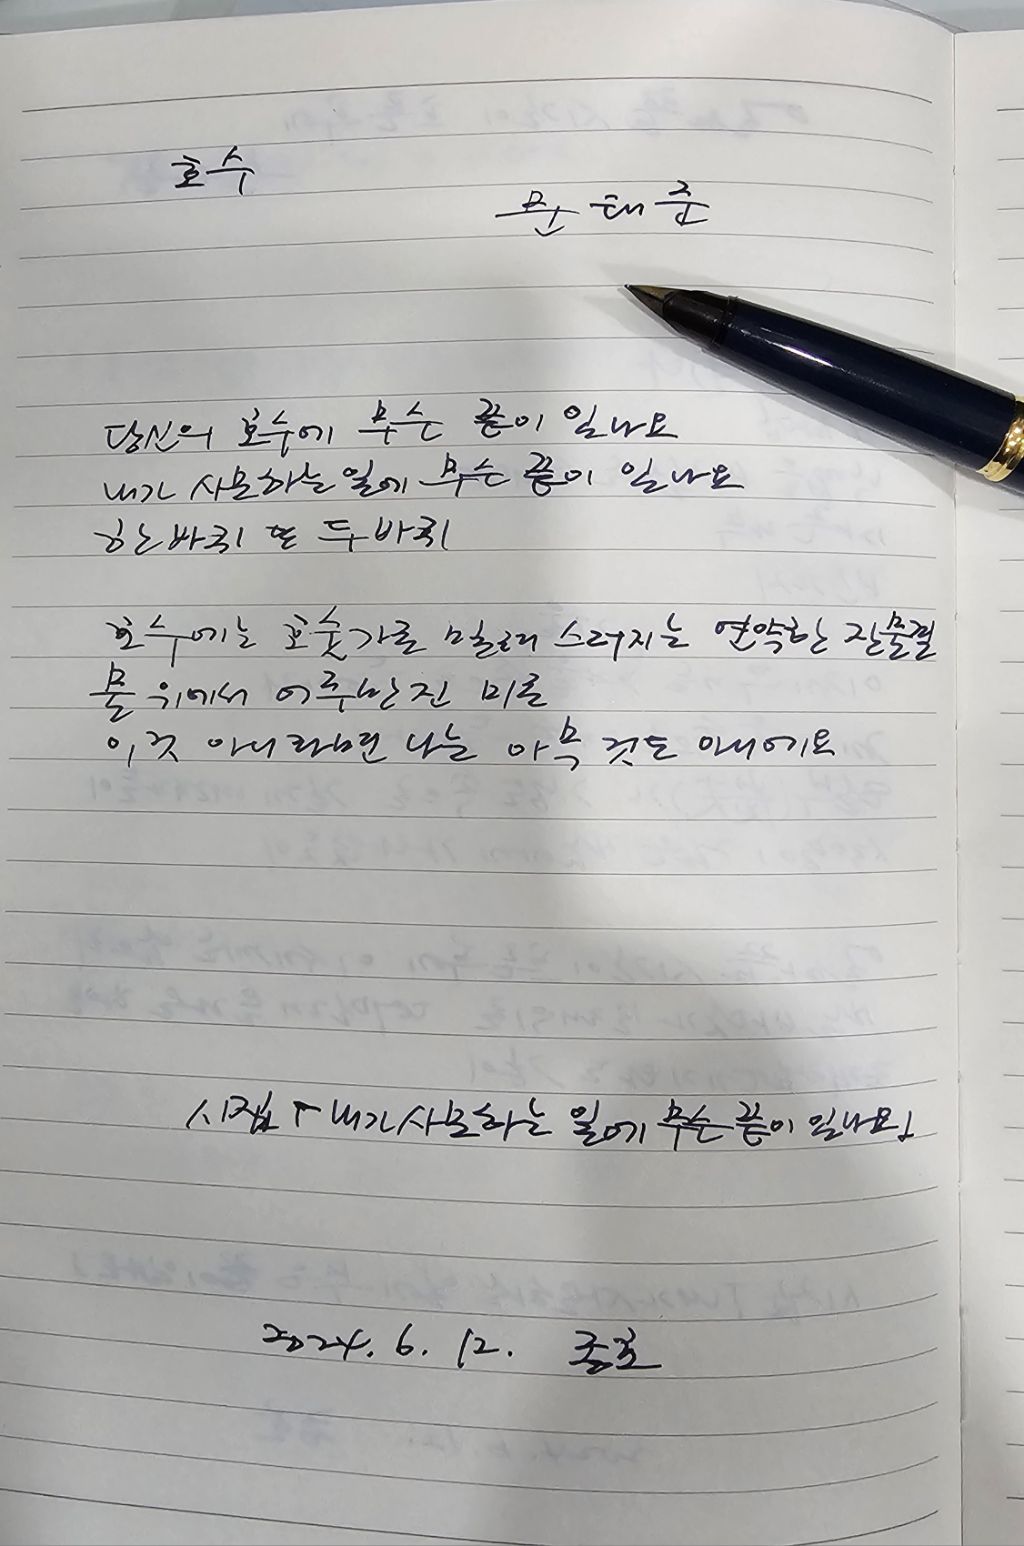 호수
문태준
당신의 호수에 무슨 끝이 있나요
내가 사모하는 일에 무슨 끝이 있나요
한 바퀴 또 두 바퀴
호수에는 호숫가로 밀려 스러지는 연약한 잔물결
물 위에서 어루만진 미로
이것 아니라면 나는 아무 것도 아니에요
시집 「내가 사모하는 일에 무슨 끝이 있나요」
2024. 6. 12.